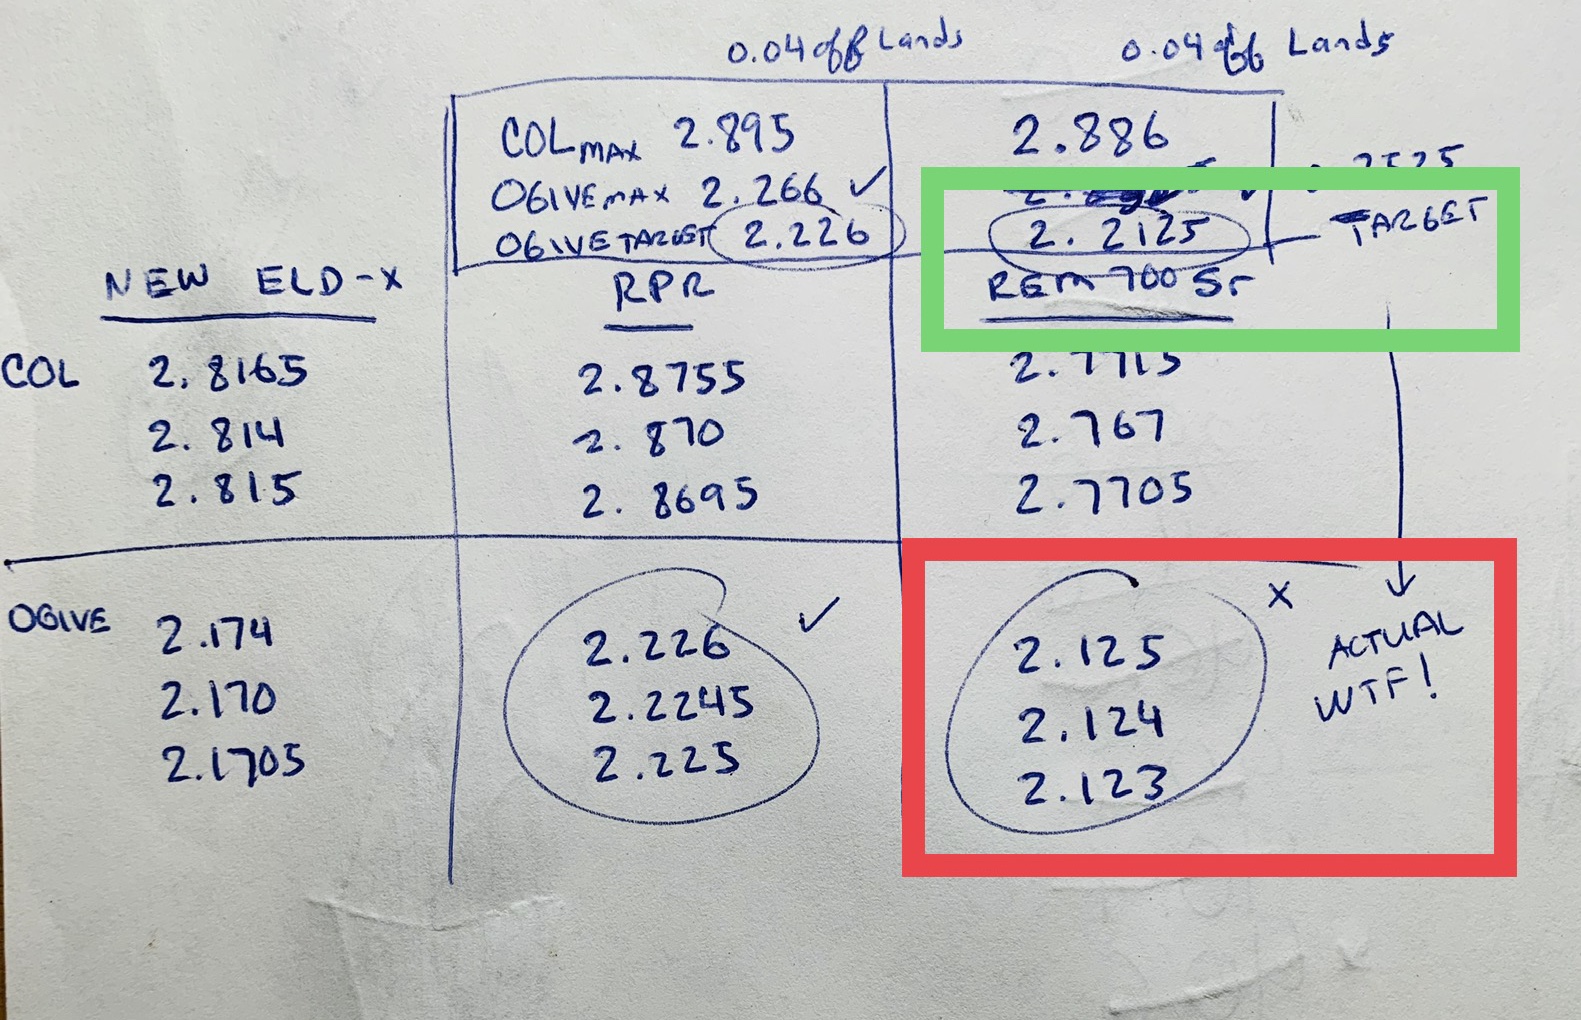 0.04 off Lands 0.04 off Lands
COL MAX 2.895 2.886
OGIVE MAX 2.266 ✓
OGIVE TARGET 2.226 2.2125 TARGET
NEW ELD-X RPR REM 700 5r
COL 2.8165 2.8755 2.7715
2.814 2.870 2.767
2.815 2.8695 2.7705
OGIVE 2.174 2.226 ✓ 2.125 X ACTUAL
2.170 2.2245 2.124 WTF!
2.1705 2.225 2.123